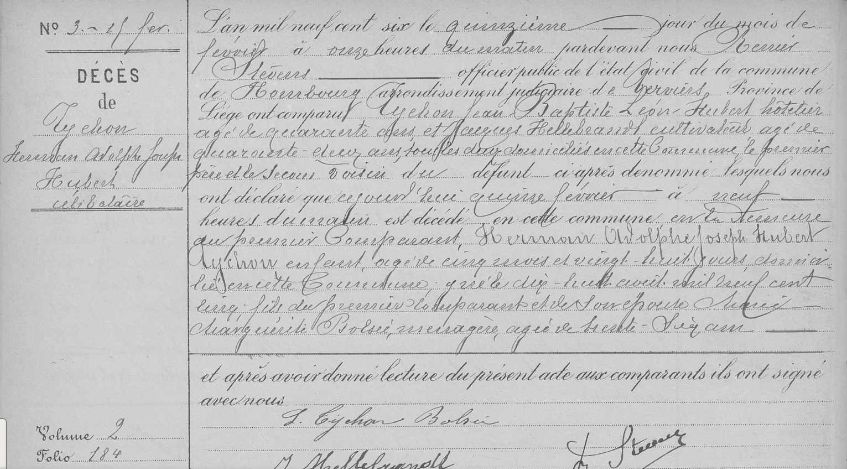 Nº 3 - 15 fev.
DÉCÈS
de
Tychon
Herman Adolphe Joseph
Hubert
célibataire
Volume 2
Folio 184
L'an mil neuf cent six le quinzième jour du mois de
fevrier à onze heures du matin pardevant nous
Stevens officier public de l'état civil de la commune
de Hombourg arrondissement judiciaire de Verviers, Province de
Liège ont comparu Tychon Jean Baptiste Léon Hubert hôtelier
agé de quarante ans et Jacques Hellebrandt cultivateur agé de
quarante-deux ans, tous les deux domiciliés en cette Commune, le premier
père et le second voisin du défunt ci-après dénommé lesquels nous
ont déclaré que cejourd'hui quinze février à neuf
heures du matin est décédé en cette commune en la demeure
du premier Comparant, Herman Adolphe Joseph Hubert
Tychon enfant, agé de cinq mois et vingt-huit jours, domici-
lié en cette Commune, né le dix-huit août mil neuf cent
cinq, fils du premier Comparant et de son épouse Marie
Marguérite Bolsée, menagère, agée de trente-six ans
et après avoir donné lecture du présent acte aux comparants ils ont signé
avec nous
L. Tychon Bolsée
J. Hellebrandt
Stevens